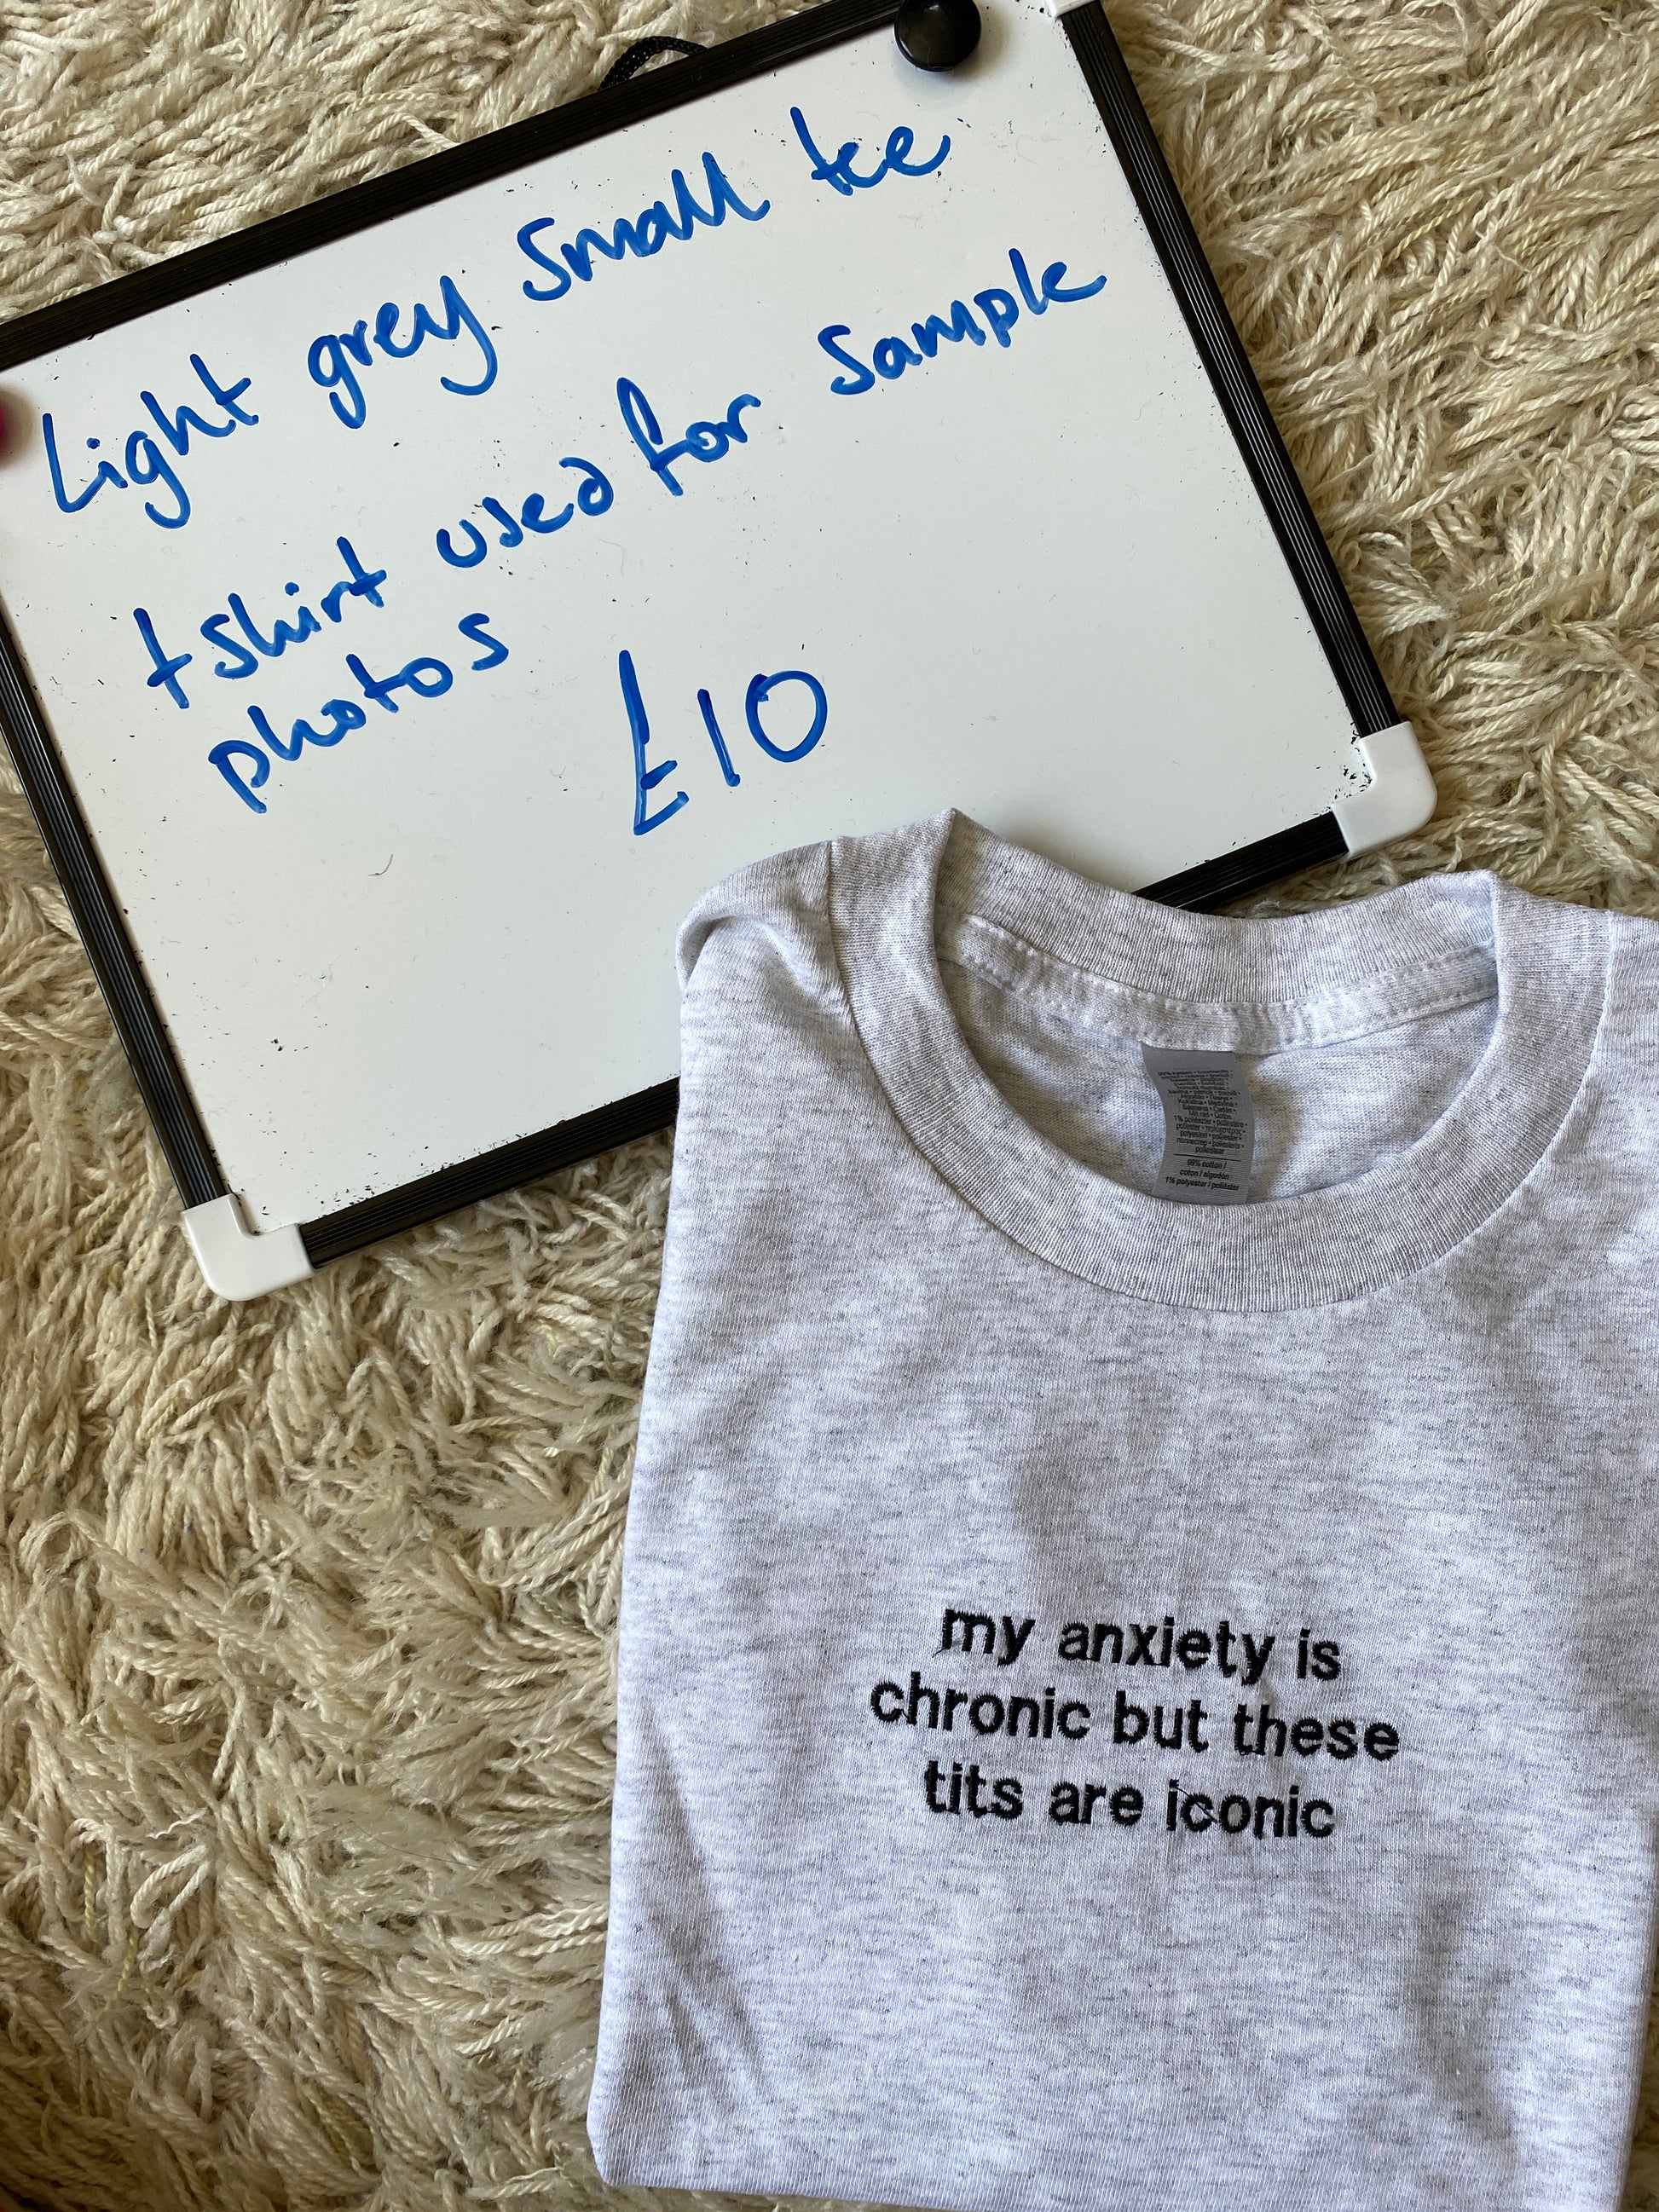 Light grey Small tee
tshirt used for Sample
photos
£10
99% cotton /
coton / algodón
1% polyester / poliéster
my anxiety is
chronic but these
tits are iconic